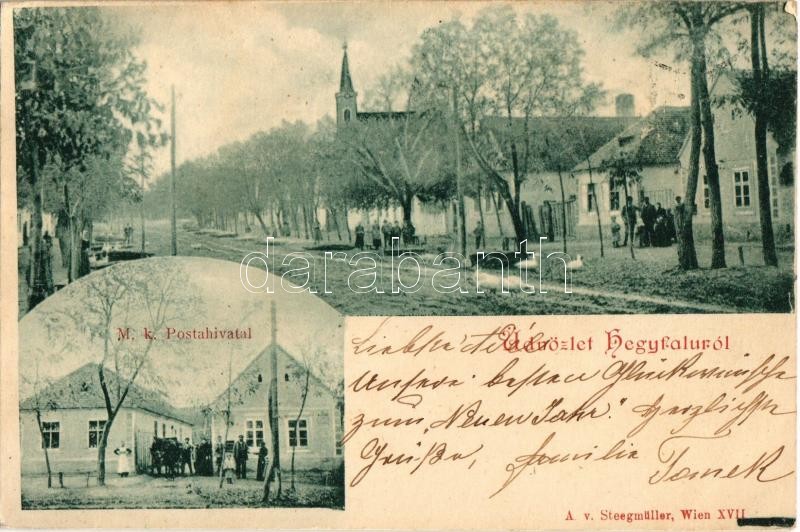 M. k. Postahivatal
darabanth
Üdvözlet Hegyfaluról
Unsere besten Glückwünsche
zum "Neuen Jahr". Herzlichste
Grüße, Familie
Tomek
A. v. Steegmüller, Wien XVII